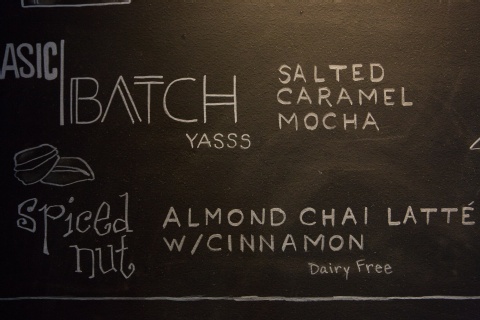 ASIC
BATCH
YASSS
SALTED
CARAMEL
MOCHA
Spiced
nut
ALMOND CHAI LATTÉ
W/CINNAMON
Dairy Free